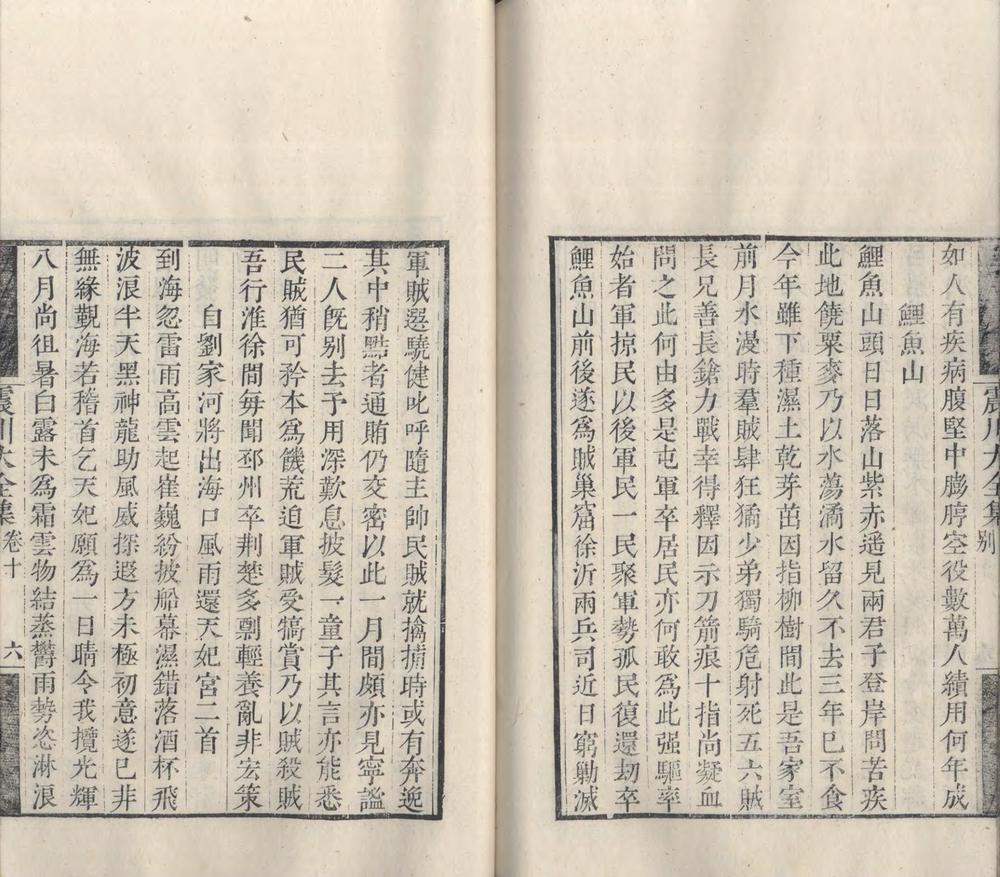 如人有疾病腹堅中膨脝空役數萬人績用何年成
鯉魚山
鯉魚山頭日日落山紫赤遥見兩君子登岸問苦疾
此地饒粟麥乃以水蕩潏水留久不去三年已不食
今年雖下種濕土乾芽茁因指柳樹間此是吾家室
前月水漫時羣賊肆狂獝少弟獨騎危射死五六賊
長兄善長鎗力戰幸得釋因示刀箭痕十指尚凝血
問之此何由多是屯軍卒居民亦何敢爲此强驅率
始者軍掠民以後軍民一民聚軍勢孤民復還刧卒
鯉魚山前後遂爲賊巢窟徐沂兩兵司近日窮勦滅
震川大全集
别
軍賊選驍健叱呼隨主帥民賊就擒捕時或有奔逸
其中稍點者通賄仍交密以此一月間頗亦見寧謐
二人旣别去予用深歎息披髮一童子其言亦能悉
民賊猶可矜本爲饑荒迫軍賊受犒賞乃以賊殺賊
吾行淮徐間每聞邳州卒荆楚多剽輕養亂非宏策
自劉家河將出海口風雨還天妃宮二首
到海忽雷雨高雲起崔巍紛披船幕濕錯落酒杯飛
波浪半天黑神龍助風威探遐方未極初意遂已非
無緣觀海若稽首乞天妃願爲一日晴令我攬光輝
八月尚徂暑白露未爲霜雲物結蒸鬱雨勢恣淋浪
震川大全集
卷十
六